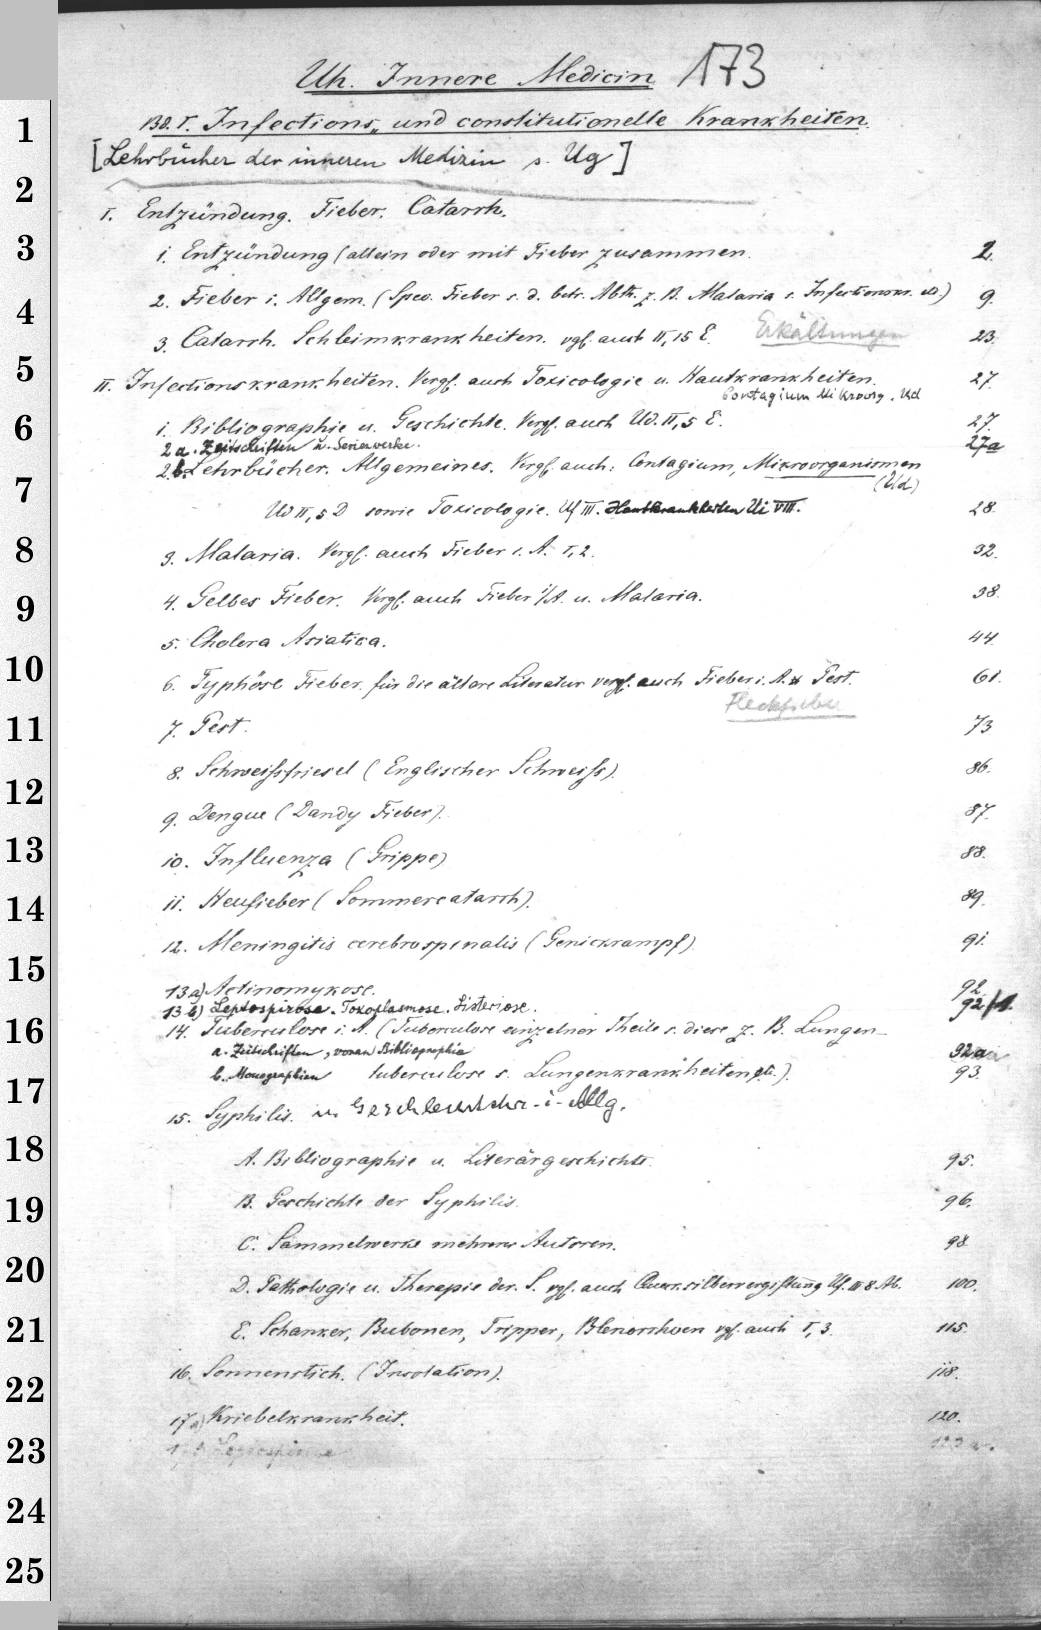 Uh. Innere Medicin 173
Bd. I. Infections- und constitutionelle Krankheiten.
[Lehrbücher der inneren Medizin s. Ug]
I. Entzündung. Fieber. Catarrh.
1. Entzündung (allein oder mit Fieber zusammen. 2.
2. Fieber i. Allgem. (Spec. Fieber s. d. betr. Abth. z. B. Malaria s. Infectionskr. etc.) 9.
3. Catarrh. Schleimkrankheiten. vgl. auch II, 15 E. Erkältungen 23.
II. Infectionskrankheiten. Vergl. auch Toxicologie u. Hautkrankheiten. 27.
Contagium Mikroorg. Ud
1. Bibliographie u. Geschichte. Vergl. auch Ud. II, 5 E. 27.
2a. Zeitschriften u. Serienwerke. 27a
2b. Lehrbücher. Allgemeines. Vergl. auch: Contagium, Mikroorganismen
(Ud)
Ud II, 5 D sowie Toxicologie. Uf III. Hautkrankheiten Ui VIII. 28.
3. Malaria. Vergl. auch Fieber i. A. I, 2. 32.
4. Gelbes Fieber. Vergl. auch Fieber i/A. u. Malaria. 38.
5. Cholera Asiatica. 44.
6. Typhöse Fieber. für die ältere Literatur vergl. auch Fieber i. A. u. Pest. 61.
Fleckfieber
7. Pest. 73
8. Schweissfriesel (Englischer Schweiss). 86.
9. Dengue (Dandy Fieber). 87.
10. Influenza (Grippe) 88.
11. Heufieber (Sommercatarrh). 89.
12. Meningitis cerebrospinalis (Genickrampf) 91.
13a) Actinomykose. 92.
13b) Leptospirose. Toxoplasmose. Listeriose. 92/1.
14. Tuberculose i. A. (Tuberculose einzelner Theile s. diese z. B. Lungen-
a. Zeitschriften, voran Bibliographie 92a
b. Monographien tuberculose s. Lungenkrankheiten etc.). 93.
15. Syphilis. u. Geschlechtskr. i. Allg.
A. Bibliographie u. Literärgeschichte. 95.
B. Geschichte der Syphilis. 96.
C. Sammelwerke mehrerer Autoren. 98
D. Pathologie u. Therapie der S. vgl. auch Quecksilbervergiftung Uf. III 8 Ab. 100.
E. Schanker, Bubonen, Tripper, Blenorrhoen vgl. auch I, 3. 115.
16. Sonnenstich. (Insolation). 118.
17a) Kriebelkrankheit. 120.
Leptospirose